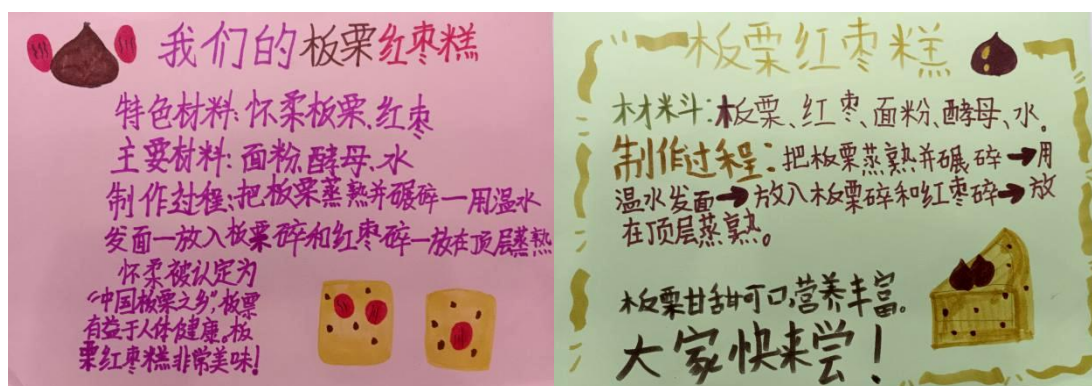 我们的板栗红枣糕
特色材料:怀柔板栗、红枣
主要材料:面粉、酵母、水
制作过程:把板栗蒸熟并碾碎—用温水
发面—放入板栗碎和红枣碎—放在顶层蒸熟
怀柔被认定为
“中国板栗之乡”,板栗
有益于人体健康。板
栗红枣糕非常美味!
板栗红枣糕
材料:板栗、红枣、面粉、酵母、水。
制作过程:把板栗蒸熟并碾碎→用
温水发面→放入板栗碎和红枣碎→放
在顶层蒸熟。
板栗甘甜可口,营养丰富。
大家快来尝!